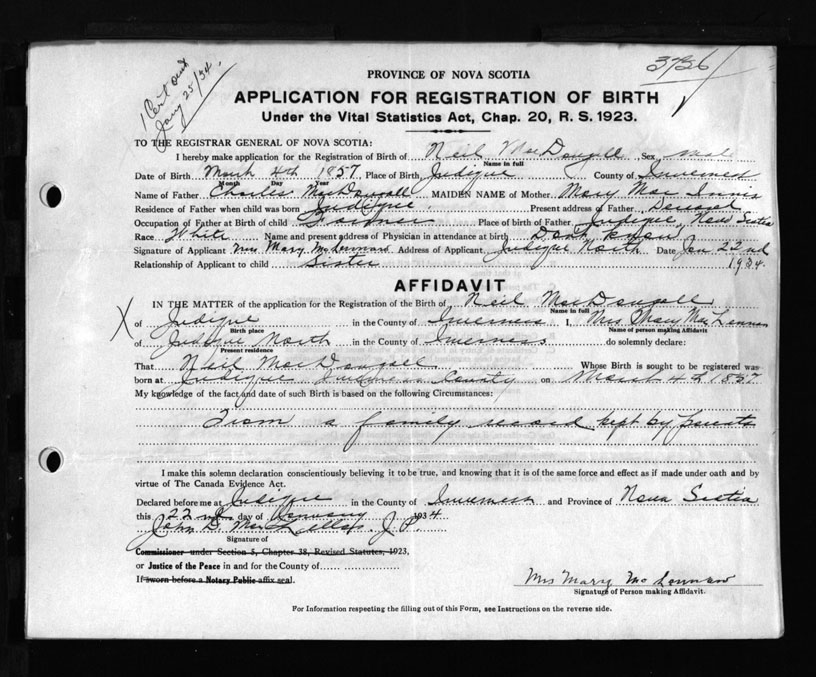 1 Cert out
Jany 25/34.
3726
PROVINCE OF NOVA SCOTIA
APPLICATION FOR REGISTRATION OF BIRTH
Under the Vital Statistics Act, Chap. 20, R. S. 1923.
TO THE REGISTRAR GENERAL OF NOVA SCOTIA:
I hereby make application for the Registration of Birth of Neil MacDougall Sex male
Name in full
Date of Birth March 4th 1857 Place of Birth Judique County of Inverness
Month Day Year
Name of Father Charles MacDougall MAIDEN NAME of Mother Mary Mac Innis
Residence of Father when child was born Judique Present address of Father Deceased
Occupation of Father at Birth of child Farmer Place of birth of Father Judique, Nova Scotia
Race White Name and present address of Physician in attendance at birth Don't know
Signature of Applicant Mrs Mary McLennan Address of Applicant Judique North Date Jan 22nd
Relationship of Applicant to child Sister 1934.
AFFIDAVIT
IN THE MATTER of the application for the Registration of the Birth of Neil MacDougall
Name in full
X of Judique in the County of Inverness I, Mrs Mary MacLennan
Birth place Name of person making affidavit
of Judique North in the County of Inverness do solemnly declare:
Present residence
That Neil MacDougall Whose Birth is sought to be registered was
born at Judique Inverness County on March 4th 1857
My knowledge of the fact and date of such Birth is based on the following Circumstances:
From a family record kept by parents
I make this solemn declaration conscientiously believing it to be true, and knowing that it is of the same force and effect as if made under oath and by
virtue of The Canada Evidence Act.
Declared before me at Judique in the County of Inverness and Province of Nova Scotia
this 22nd day of January 1934
John D. Mac J. P.
Signature of
Commissioner under Section 5, Chapter 38, Revised Statutes, 1923,
or Justice of the Peace in and for the County of
If sworn before a Notary Public affix seal.
Mrs Mary McLennan
Signature of Person making Affidavit.
For Information respecting the filling out of this Form, see Instructions on the reverse side.